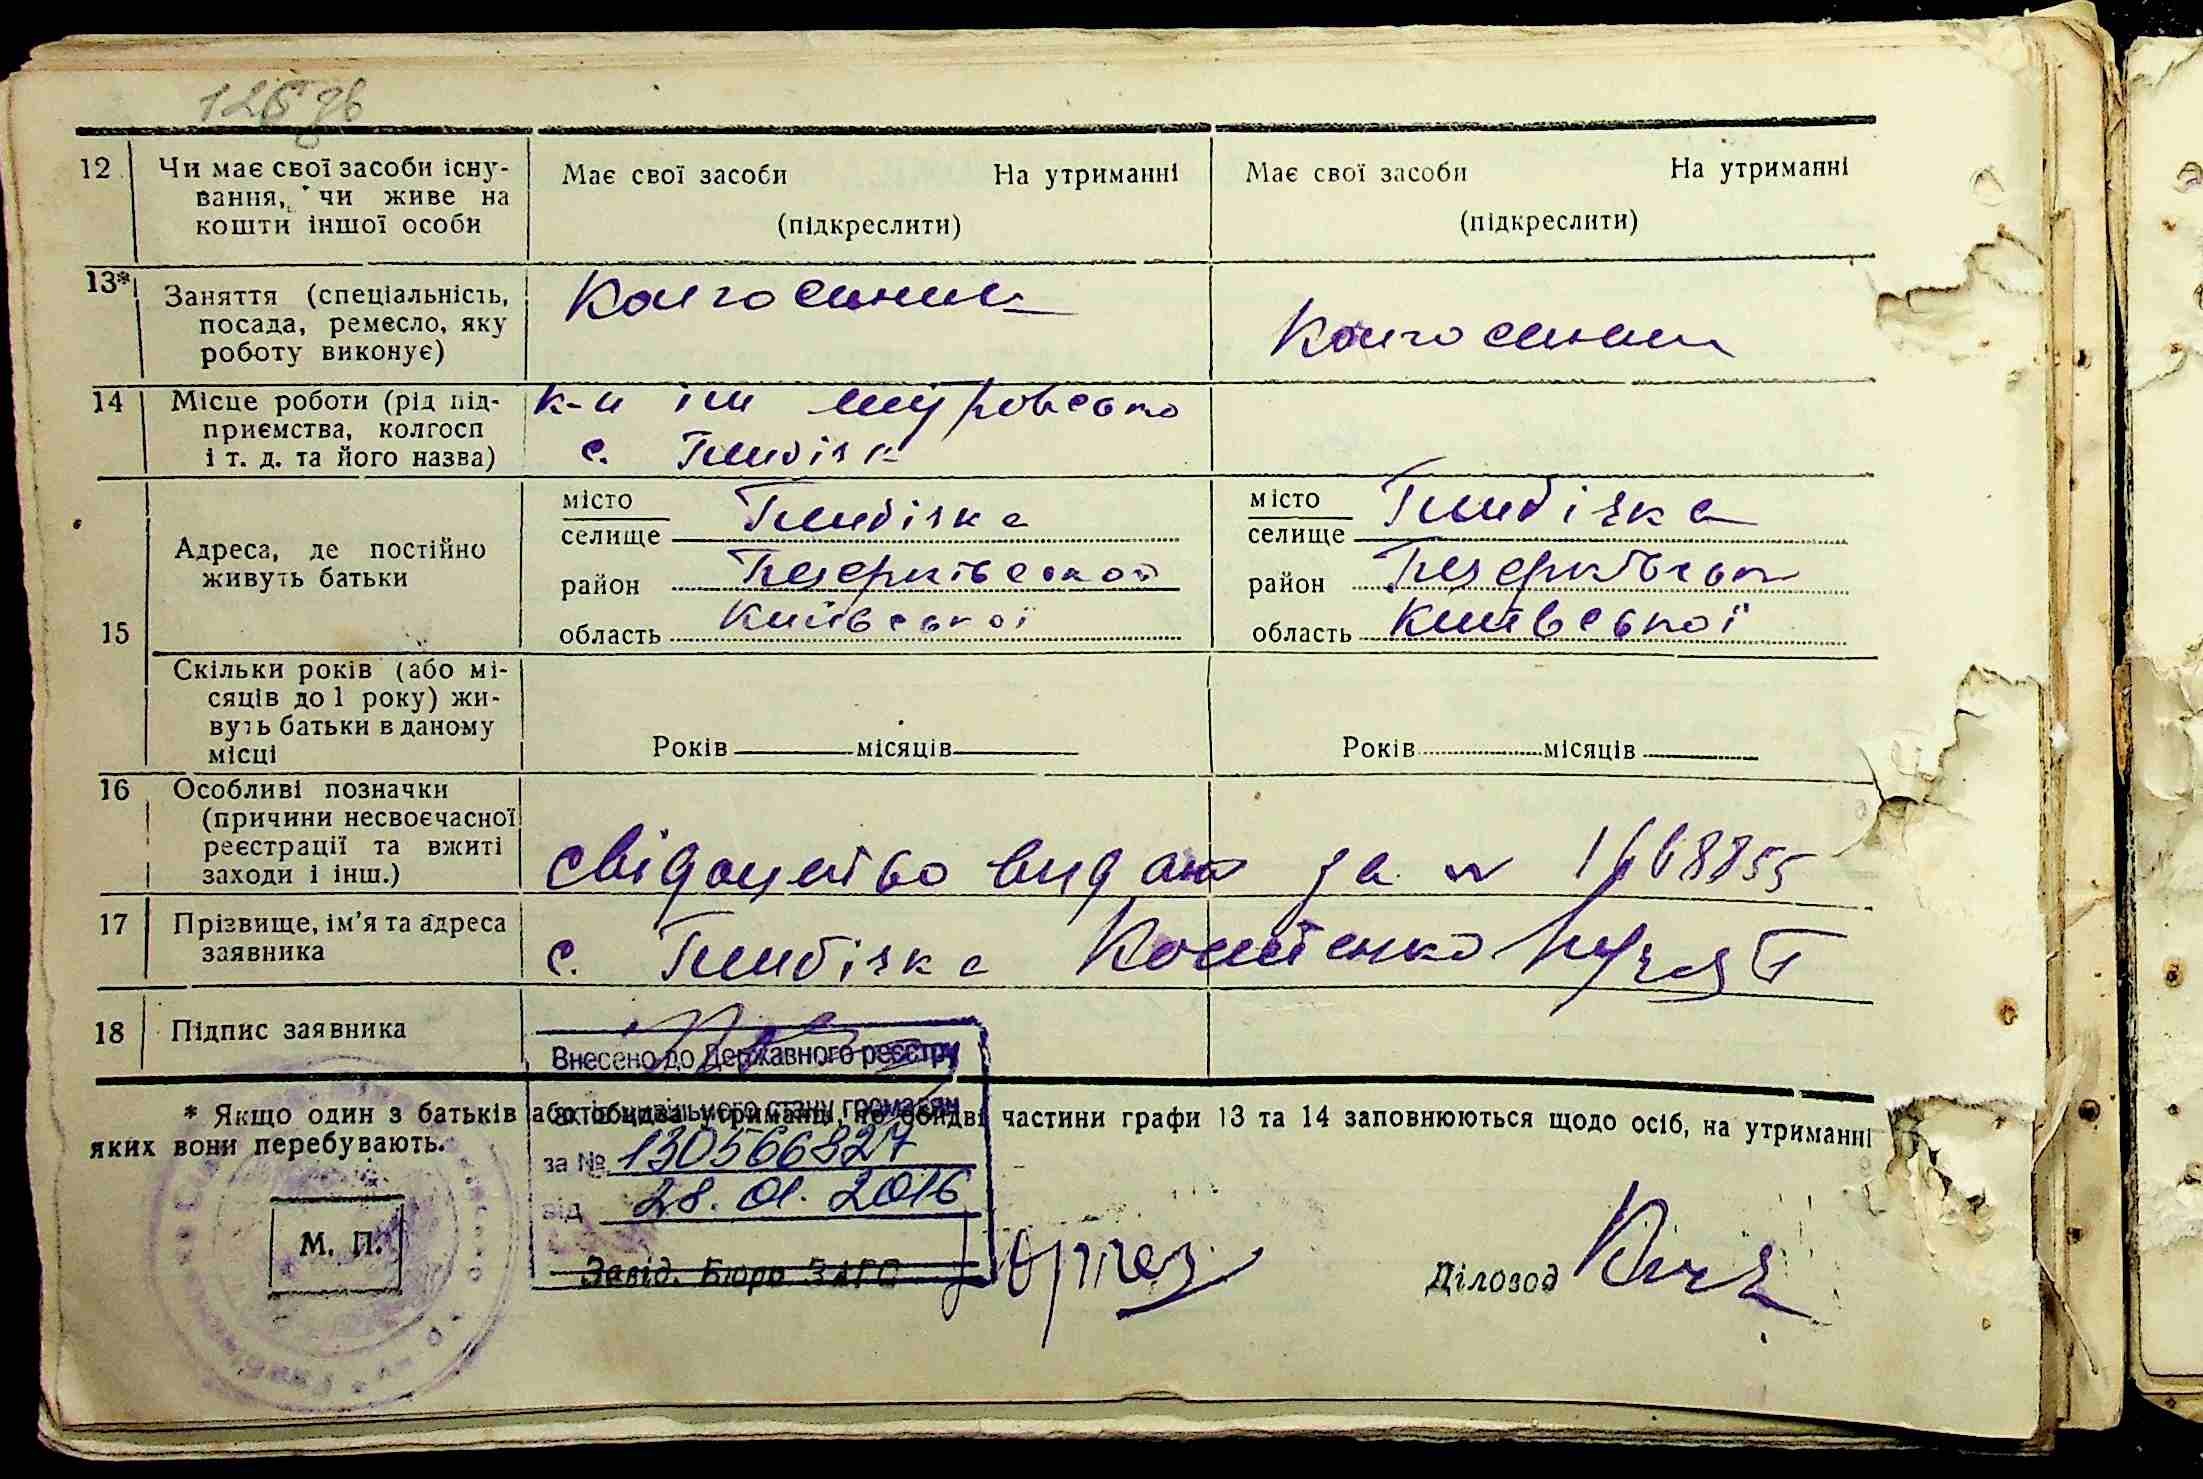 12 Чи має свої засоби існу-
вання, чи живе на
кошти іншої особи
Має свої засоби На утриманні
(підкреслити)
Має свої засоби На утриманні
(підкреслити)
13* Заняття (спеціальність,
посада, ремесло, яку
роботу виконує)
Колгоспник
Колгоспник
14 Місце роботи (рід під-
приємства, колгосп
і т. д. та його назва)
к-п ім
с. Глибічка
15 Адреса, де постійно
живуть батьки
місто
селище Глибічка
район
область Київської
місто
селище Глибічка
район
область Київської
Скільки років (або мі-
сяців до 1 року) жи-
вуть батьки в даному
місці
Років місяців
Років місяців
16 Особливі позначки
(причини несвоєчасної
реєстрації та вжиті
заходи і інш.)
свідоцтво видано за №
17 Прізвище, ім'я та адреса
заявника
с. Глибічка
18 Підпис заявника
Внесено до Державного реєстру
актів цивільного стану громадян
за № 130566827
від 28.01.2016
* Якщо один з батьків або обидва утриманці, то обидві частини графи 13 та 14 заповнюються щодо осіб, на утриманні
яких вони перебувають.
М. П.
Завід. Бюро ЗАГС
Діловод